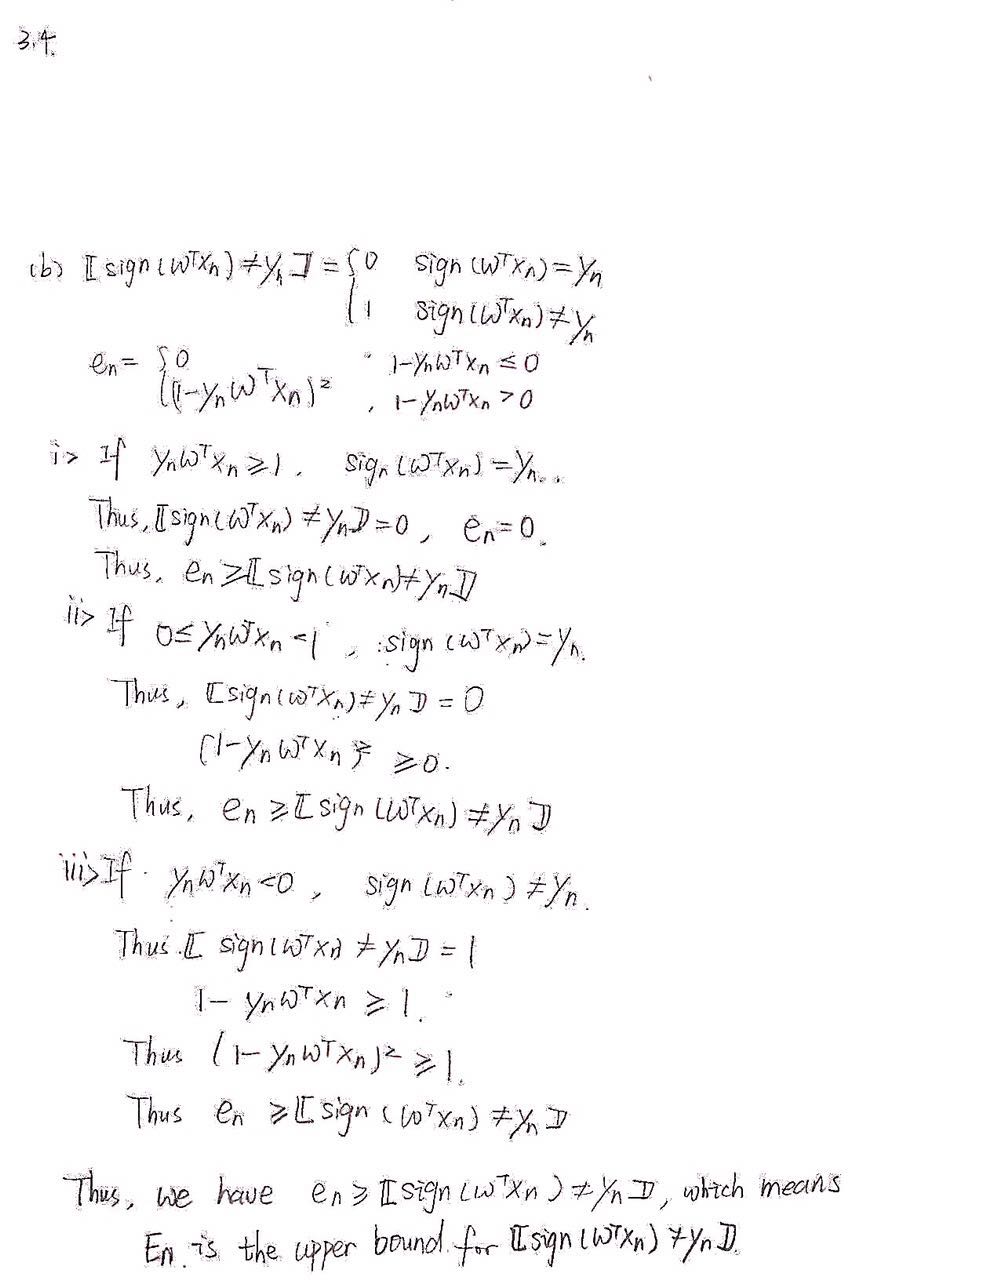 3.4.
(b) ⟦sign(wᵀxₙ)≠yₙ⟧ = { 0 sign(wᵀxₙ)=yₙ
1 sign(wᵀxₙ)≠yₙ
eₙ= { 0 1-yₙwᵀxₙ ≤ 0
(1-yₙwᵀxₙ)² , 1-yₙwᵀxₙ > 0
i> If yₙwᵀxₙ ≥ 1, sign(wᵀxₙ)=yₙ.
Thus, ⟦sign(wᵀxₙ) ≠ yₙ⟧ = 0, eₙ=0.
Thus, eₙ ≥ ⟦sign(wᵀxₙ)≠yₙ⟧
ii> If 0 ≤ yₙwᵀxₙ < 1, sign(wᵀxₙ)=yₙ.
Thus, ⟦sign(wᵀxₙ)≠yₙ⟧ = 0
(1-yₙwᵀxₙ)² ≥ 0.
Thus, eₙ ≥ ⟦sign(wᵀxₙ) ≠ yₙ⟧
iii> If yₙwᵀxₙ < 0, sign(wᵀxₙ) ≠ yₙ.
Thus ⟦sign(wᵀxₙ) ≠ yₙ⟧ = 1
1- yₙwᵀxₙ ≥ 1.
Thus (1- yₙwᵀxₙ)² ≥ 1.
Thus eₙ ≥ ⟦sign(wᵀxₙ) ≠ yₙ⟧
Thus, we have eₙ ≥ ⟦sign(wᵀxₙ) ≠ yₙ⟧, which means
Eₙ is the upper bound for ⟦sign(wᵀxₙ) ≠ yₙ⟧.